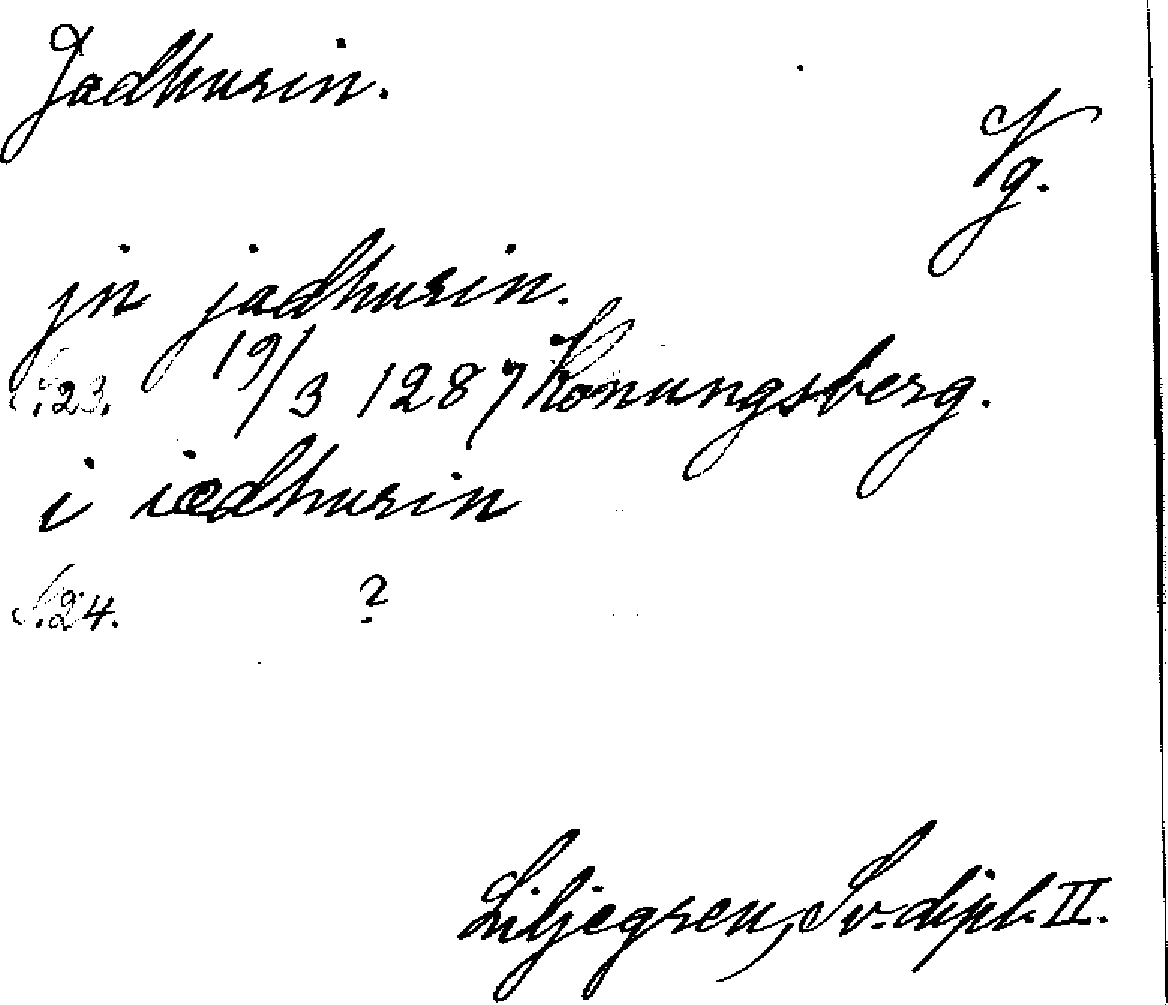 Jadhurin.
Vg.
jn jadhurin.
S. 23. 19/3 1287 Konungsberg.
i iædhurin
S. 24. ?
Liljegren, Sv. dipl. II.